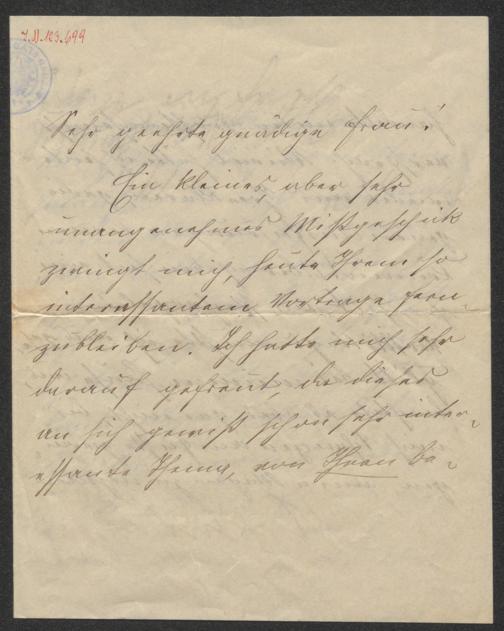 J.N. 123.699
Sehr geehrte gnädige Frau!
Ein kleines, aber sehr
unangenehmes Mißgeschick
zwingt mich, heute Ihrem so
interessanten Vortrage fern-
zubleiben. Ich hatte mich sehr
darauf gefreut, da dieses
an sich gewiß schon sehr inter-
essante Thema, von Ihnen be-